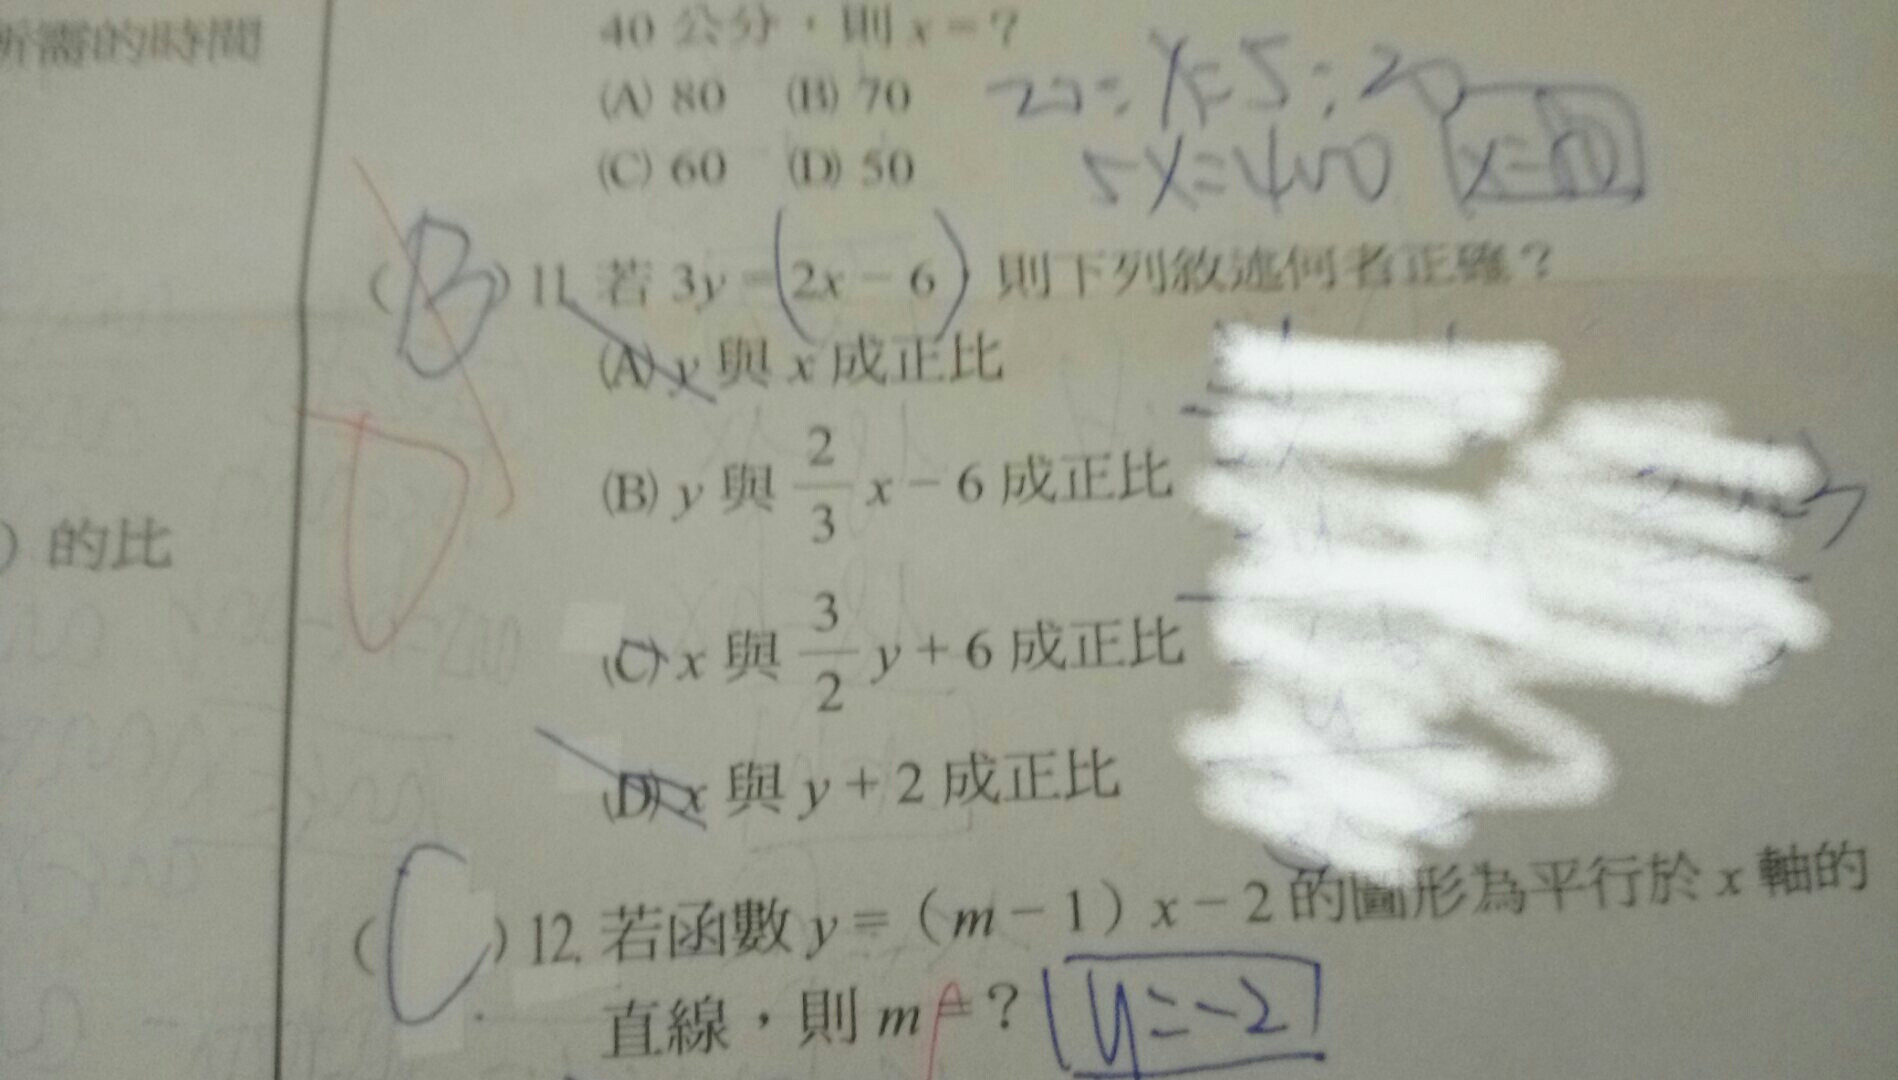 所需的時間
40 公分，則 x = ?
(A) 80 (B) 70
(C) 60 (D) 50
5x=400
(B) 11. 若 3y = (2x - 6)，則下列敘述何者正確？
(A) y 與 x 成正比
(B) y 與 2/3 x - 6 成正比
D
) 的比
(C) x 與 3/2 y + 6 成正比
(D) x 與 y + 2 成正比
(C) 12. 若函數 y = (m - 1) x - 2 的圖形為平行於 x 軸的
直線，則 m = ? y=-2